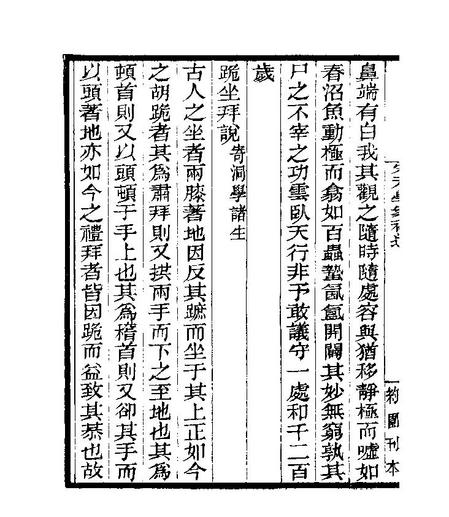 鼻端有白我其觀之隨時隨處容與猶移靜極而噓如
春沼魚動極而翕如百蟲蟄氤氳開闢其妙無窮孰其
尸之不宰之功雲臥天行非予敢議守一處和千二百
歲
跪坐拜說寄洞學諸生
古人之坐者兩膝著地因反其蹠而坐于其上正如今
之胡跪者其為肅拜則又拱兩手而下之至地也其為
頓首則又以頭頓于手上也其為稽首則又卻其手而
以頭著地亦如今之禮拜者皆因跪而益致其恭也故
刊本